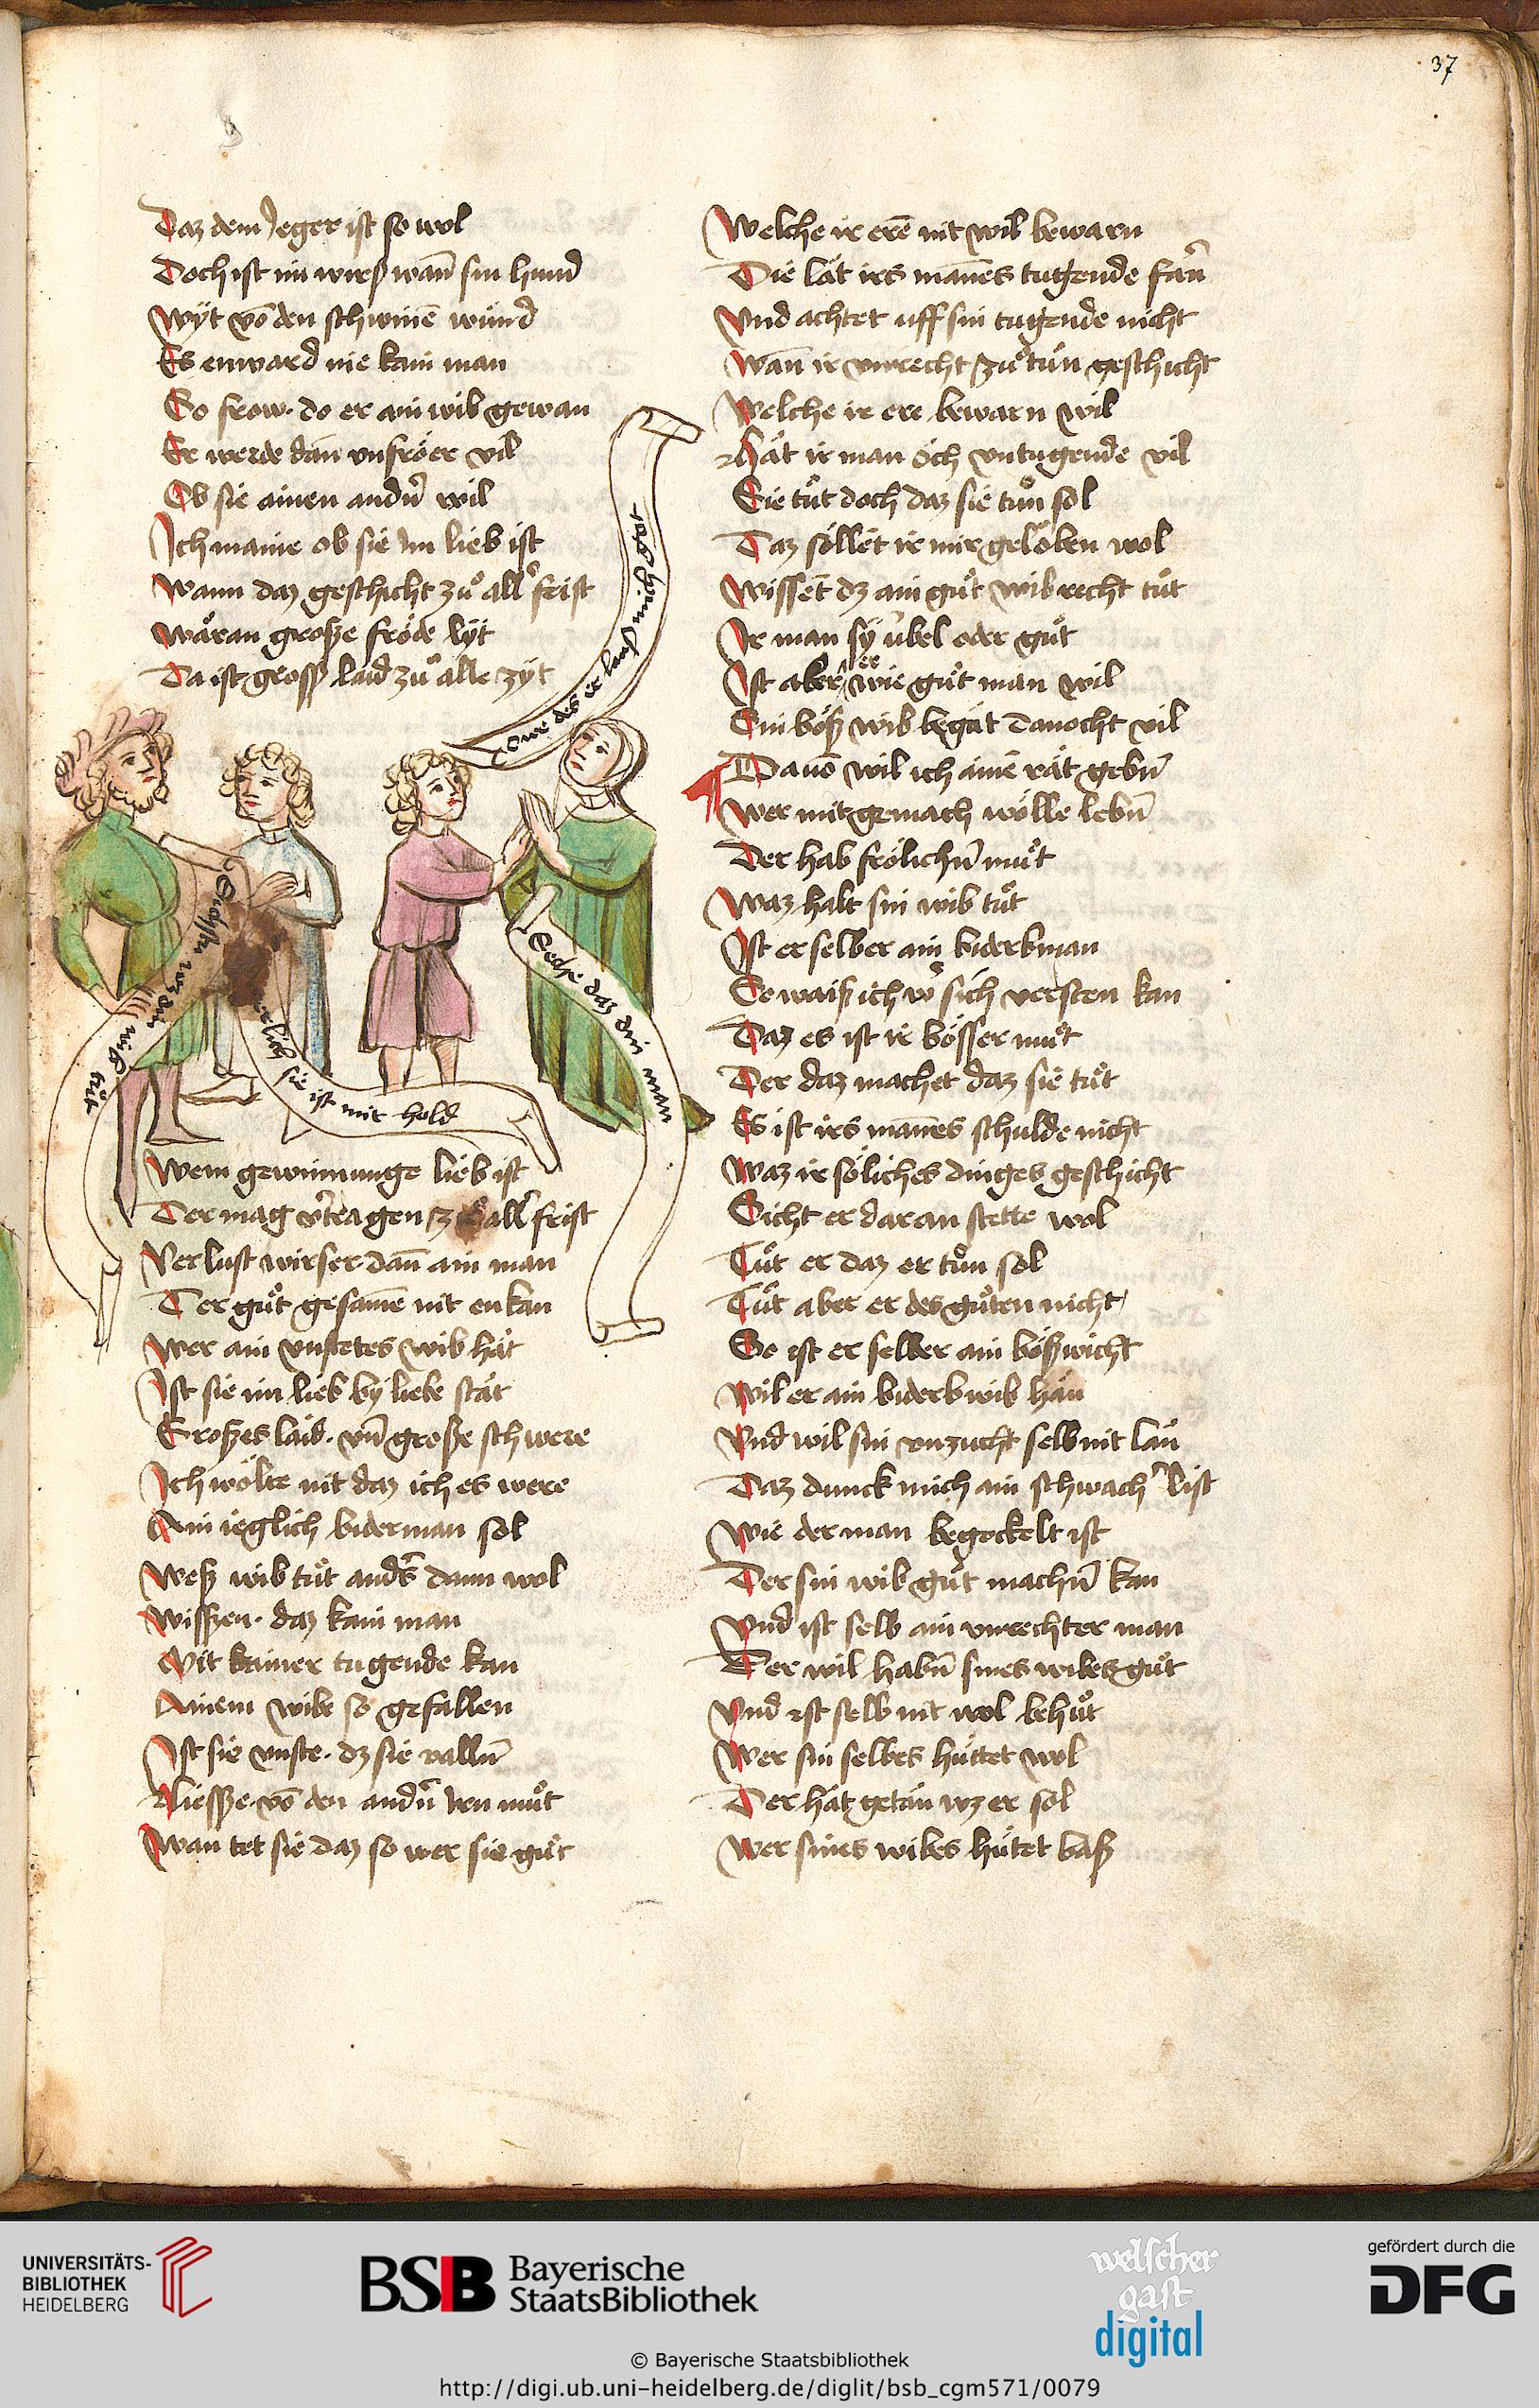 37
Daz dem Jeger ist so wol
Doch ist im wirß wan̄ sin hund
Wÿt vō den schwinē wund
Es enward nie kain man
So frow. do er ain wib gewan
Er werde dan̄ vnfröer vil
Ob sie ainen andn̄ wil
Ich maine ob sie Im lieb ist
Wann daz geschicht zů all' frist
Wăran große fröde lÿt
Da ist gross laid zů alle zÿt
owe des er lauf
Seche daz din man
wib tůt
sie ist mir hold
Wem gewinnunge lieb ist
Der mag v'tragen zů all' frist
Verlust wirser dan̄ ain man
Der gůt gesamē nit enkan
Wer ain vnstetes wib hăt
Ist sie im lieb bÿ liebe stăt
Großes laid. vn̄ große schwere
Ich wölte nit daz ich es were
Ain ieglich biderman sol
Weß wib tůt anders dann wol
Wisßen. daz kain man
Mit kainer tugende kan
Ainem wibe so gefallen
Ist sie vnste. dz sie valln̄
Liessze. vō den andn̄ Iren můt
Wan tet sie daz so wer sie gůt
Welche ir erē nit wil bewarn
Die lăt irs man̄es tugende farn̄
Vnd achtet uff sin tugende nicht
Wan̄ ir vnrecht zů tůn geschicht
Welche ir ere bewarn wil
Hăt ir man öch vntugende vil
Sie tůt doch daz sie tůn sol
Daz söllēt ir mir gelöben wol
Wissēt dz ain gůt wib recht tůt
Ir man sÿ übel oder gůt
Ist aber er wie gůt man wil
Ein böß wib begăt danocht vil
Dauō wil ich ainē răt gebn̄
Wer mit gemach wölle lebn̄
Der hab frölichn̄ můt
Waz halt sin wib tůt
Ist er selber ain biderbman
So waiß ich w' sich versten kan
Daz es ist ir bösser můt
Der daz machet daz sie tůt
Es ist irs man̄es schulde nicht
Waz ir söliches dinges geschicht
Sicht er daran stette wol
Tůt er daz er tůn sol
Tůt aber er des gůten nicht
So ist er selber ain bößwicht
Wil er ain biderb wib hăn
Vnd wil sin vnzucht selb nit lăn
Daz dunck mich ain schwach' list
Wie der man begockelt ist
Der sin wib gůt machn̄ kan
Vnd ist selb ain vnrechter man
Der wil habn̄ sines wibes gůt
Vnd ist selb nit wol behůt
Wer sin selbes hüttet wol
Der hăt getăn wz er sol
Wer sines wibes hütet baß
UNIVERSITÄTS-
BIBLIOTHEK
HEIDELBERG
BSB Bayerische
StaatsBibliothek
welscher
gast
digital
gefördert durch die
DFG
© Bayerische Staatsbibliothek
http://digi.ub.uni-heidelberg.de/diglit/bsb_cgm571/0079